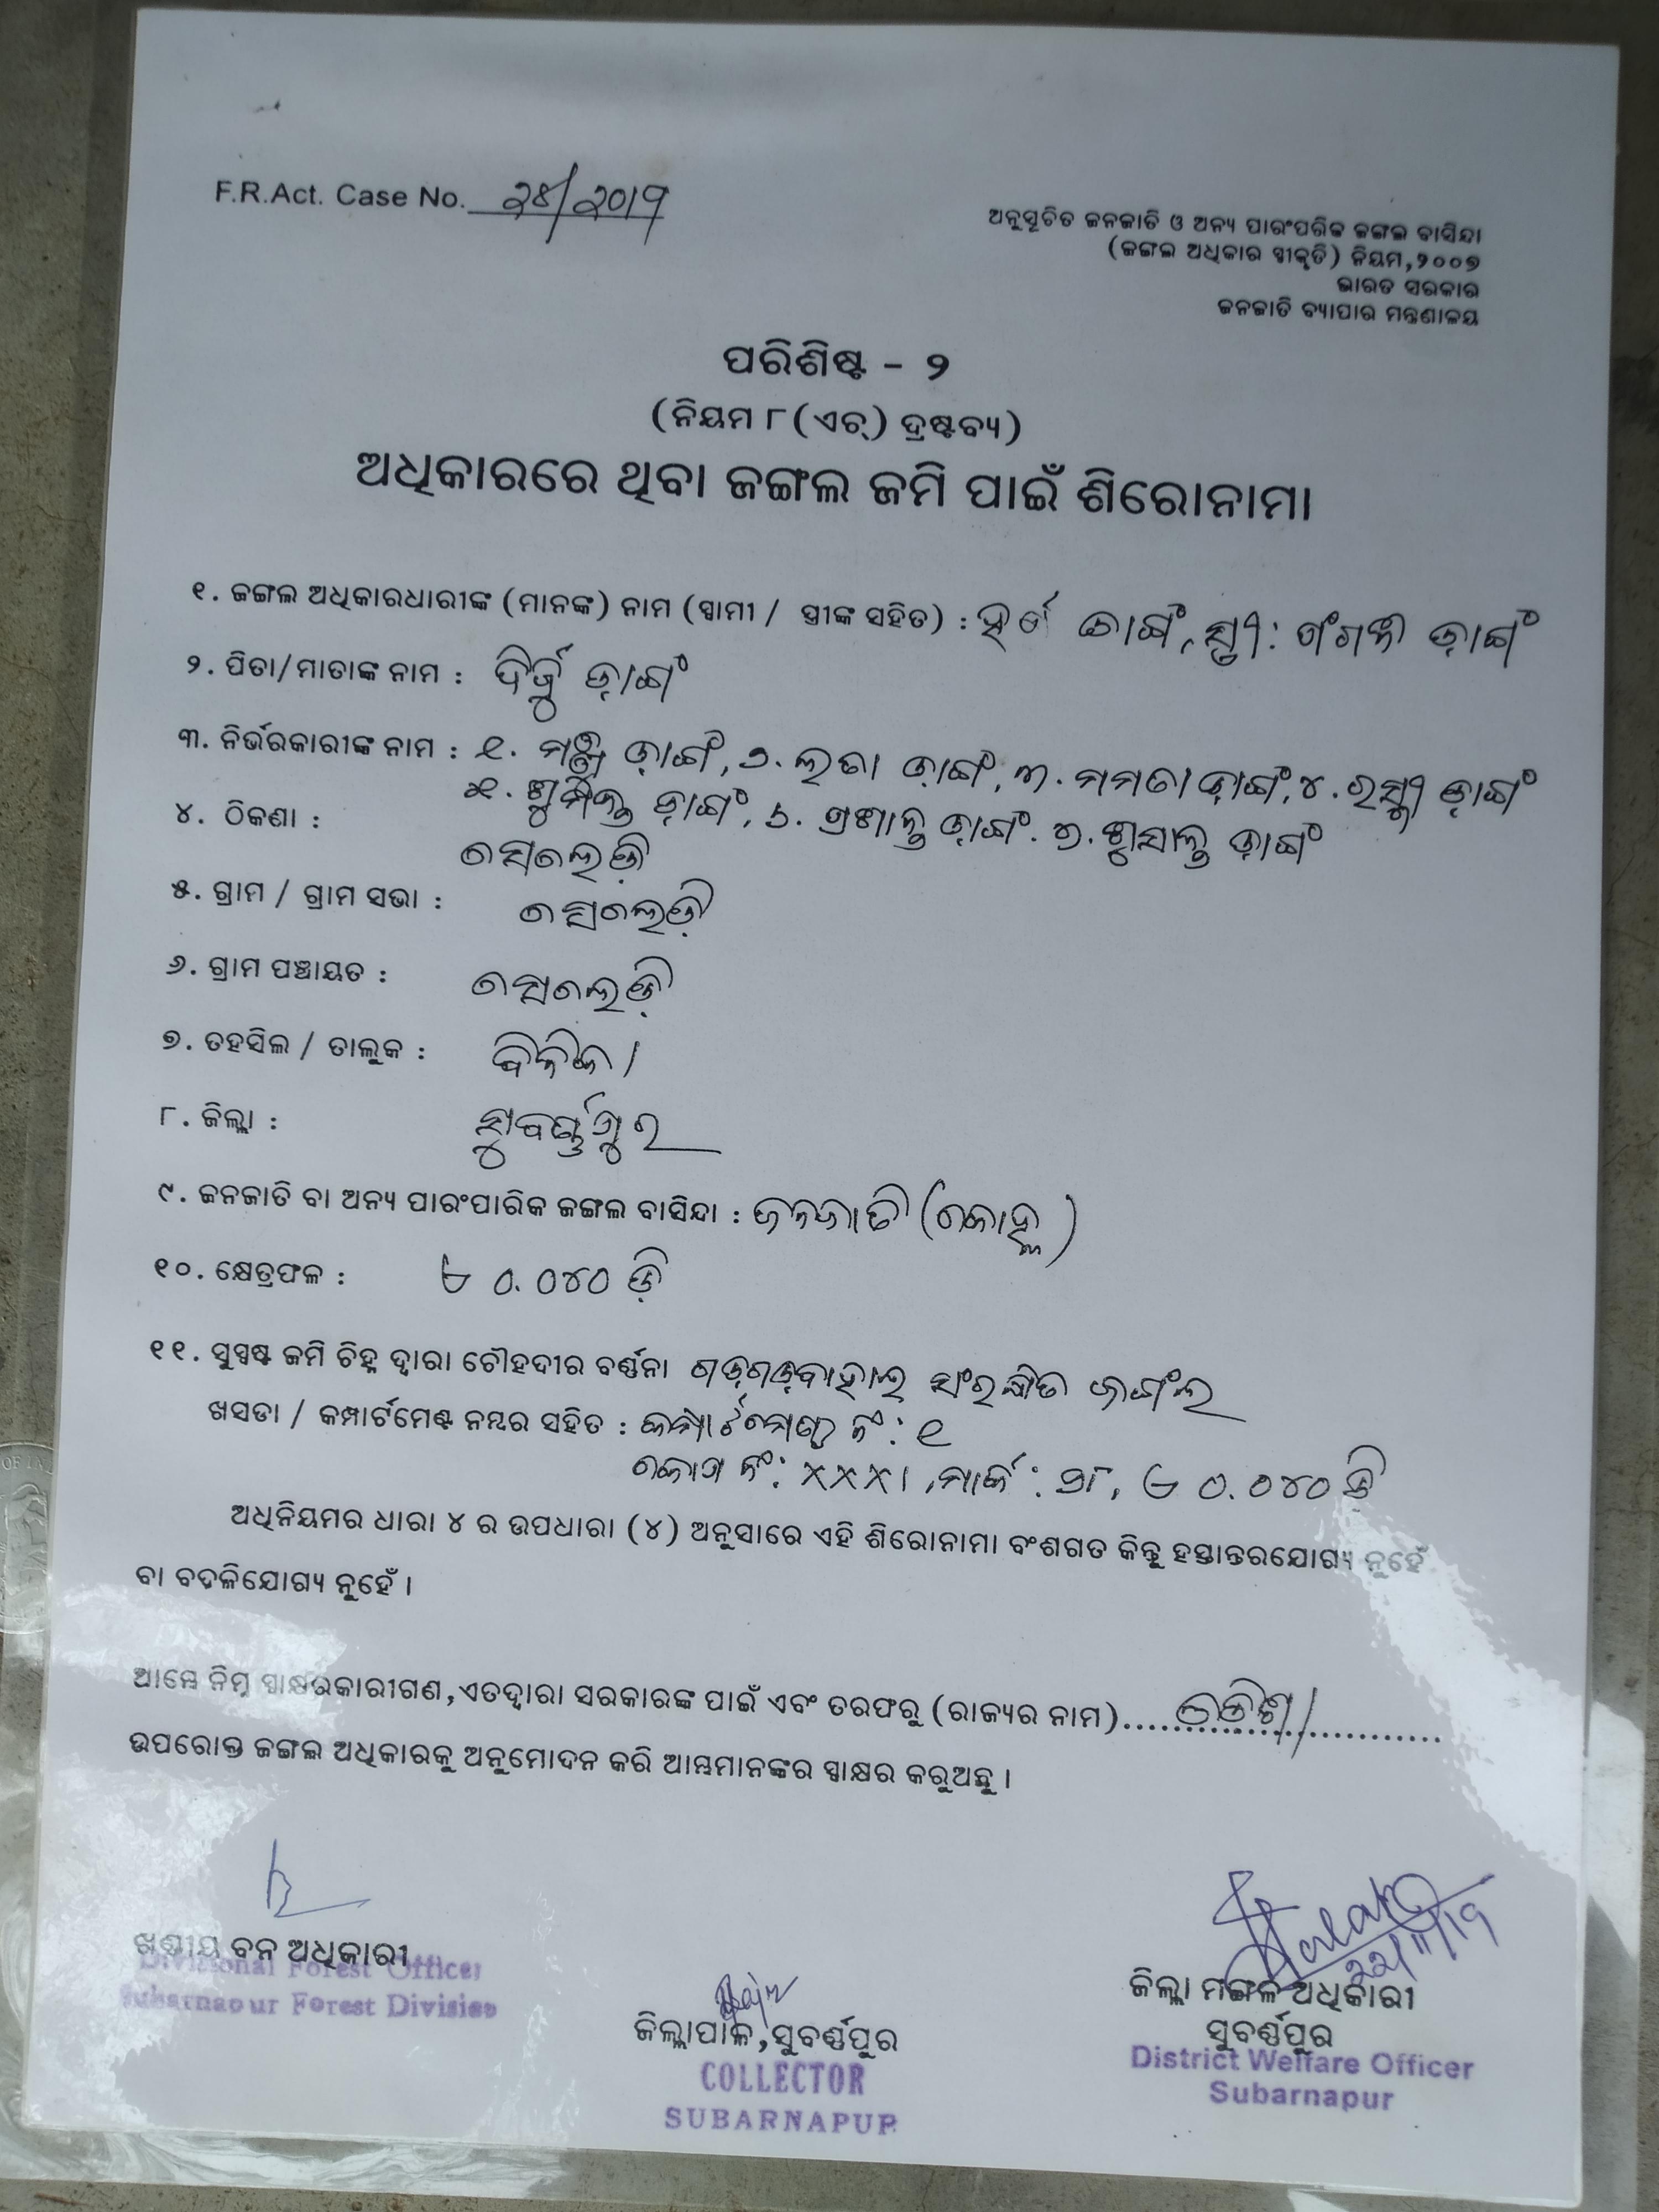 F.R.Act. Case No. ୨୪/୨୦୧୭
ଅନୁସୂଚିତ ଜନଜାତି ଓ ଅନ୍ୟ ପାରଂପରିକ ଜଙ୍ଗଲ ବାସିନ୍ଦା
(ଜଙ୍ଗଲ ଅଧିକାର ସ୍ୱୀକୃତି) ନିୟମ,୨୦୦୭
ଭାରତ ସରକାର
ଜନଜାତି ବ୍ୟାପାର ମନ୍ତ୍ରଣାଳୟ
ପରିଶିଷ୍ଟ - ୨
(ନିୟମ ୮ (ଏଚ୍) ଦ୍ରଷ୍ଟବ୍ୟ)
ଅଧିକାରରେ ଥିବା ଜଙ୍ଗଲ ଜମି ପାଇଁ ଶିରୋନାମା
୧. ଜଙ୍ଗଲ ଅଧିକାରଧାରୀଙ୍କ (ମାନଙ୍କ) ନାମ (ସ୍ୱାମୀ / ସ୍ତ୍ରୀଙ୍କ ସହିତ) :
୨. ପିତା/ମାତାଙ୍କ ନାମ :
୩. ନିର୍ଭରକାରୀଙ୍କ ନାମ : ୧. ୨. ଲତା ୩. ମମତା ୪.
୫. ୬. ପ୍ରଶାନ୍ତ ୭. ସୁସାନ୍ତ
୪. ଠିକଣା : ସେଲେଡ଼ି
୫. ଗ୍ରାମ / ଗ୍ରାମ ସଭା : ସେଲେଡ଼ି
୬. ଗ୍ରାମ ପଞ୍ଚାୟତ : ସେଲେଡ଼ି
୭. ତହସିଲ / ତାଲୁକ : ବିନିକା
୮. ଜିଲ୍ଲା : ସୁବର୍ଣ୍ଣପୁର
୯. ଜନଜାତି ବା ଅନ୍ୟ ପାରଂପାରିକ ଜଙ୍ଗଲ ବାସିନ୍ଦା : ଜନଜାତି (କୋହ୍ଲ)
୧୦. କ୍ଷେତ୍ରଫଳ : ୦.୦୪୦ ଡ଼ି
୧୧. ସୁସ୍ପଷ୍ଟ ଜମି ଚିହ୍ନ ଦ୍ୱାରା ଚୌହଦୀର ବର୍ଣ୍ଣନା ଗଡ଼ଗଡ଼ବାହାଲ ସଂରକ୍ଷିତ ଜଙ୍ଗଲ
ଖସଡା / କମ୍ପାର୍ଟମେଣ୍ଟ ନମ୍ବର ସହିତ : କମ୍ପାର୍ଟମେଣ୍ଟ ନଂ : ୧
ନଂ: XXXI ,ମାର୍କ : ୦.୦୪୦ ଡ଼ି
ଅଧିନିୟମର ଧାରା ୪ ର ଉପଧାରା (୪) ଅନୁସାରେ ଏହି ଶିରୋନାମା ବଂଶଗତ କିନ୍ତୁ ହସ୍ତାନ୍ତରଯୋଗ୍ୟ ନୁହେଁ
ବା ବଦଳିଯୋଗ୍ୟ ନୁହେଁ ।
ଆମ୍ଭେ ନିମ୍ନ ସ୍ୱାକ୍ଷରକାରୀଗଣ,ଏତଦ୍ୱାରା ସରକାରଙ୍କ ପାଇଁ ଏବଂ ତରଫରୁ (ରାଜ୍ୟର ନାମ)..... ଓଡିଶା .....
ଉପରୋକ୍ତ ଜଙ୍ଗଲ ଅଧିକାରକୁ ଅନୁମୋଦନ କରି ଆମ୍ଭମାନଙ୍କର ସ୍ୱାକ୍ଷର କରୁଅଛୁ ।
ଖଣ୍ଡୀୟ ବନ ଅଧିକାରୀ
Divisional Forest Officer
Subarnapur Forest Division
ଜିଲ୍ଲାପାଳ,ସୁବର୍ଣ୍ଣପୁର
COLLECTOR
SUBARNAPUR
22/11/19
ଜିଲ୍ଲା ମଙ୍ଗଳ ଅଧିକାରୀ
ସୁବର୍ଣ୍ଣପୁର
District Welfare Officer
Subarnapur